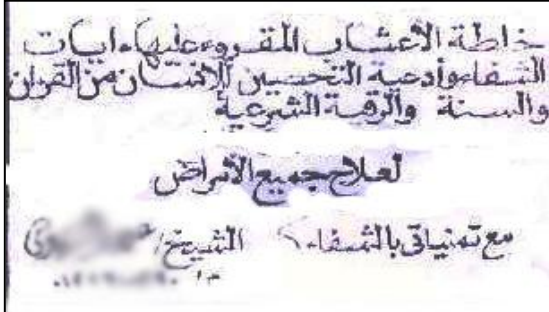 خاطة الأعشاب المقروء عليها ايات
الشفاء وأدعية التحسين للإنسان من القرآن
والسنة والرقية الشرعية
لعلاج جميع الأمراض
مع تمنياتي بالشفاء الشيخ/